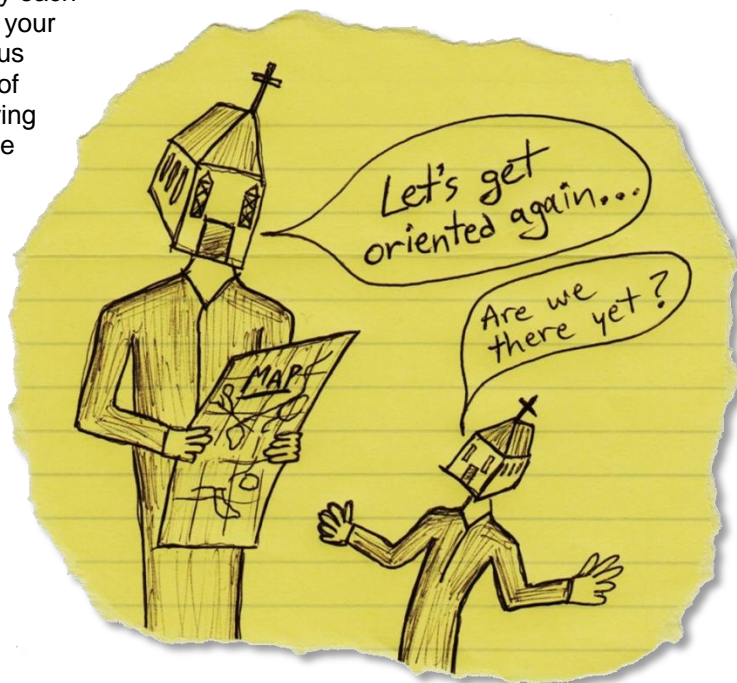 each
your
us
of
ing
e
Let's get
oriented again...
Are we
there yet?
MAP